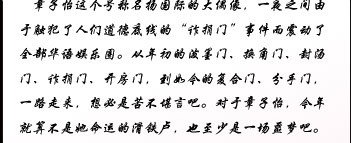 章子怡这个号称名扬国际的大偶像，一夜之间由
于触犯了人们道德底线的“诈捐门”事件而震动了
全部华语娱乐圈。从年初的泼墨门、换角门、封汤
门、诈捐门、开房门，到如今的复合门、分手门，
一路走来，想必是苦不堪言吧。对于章子怡，今年
就算不是她命运的滑铁卢，也至少是一场噩梦吧。